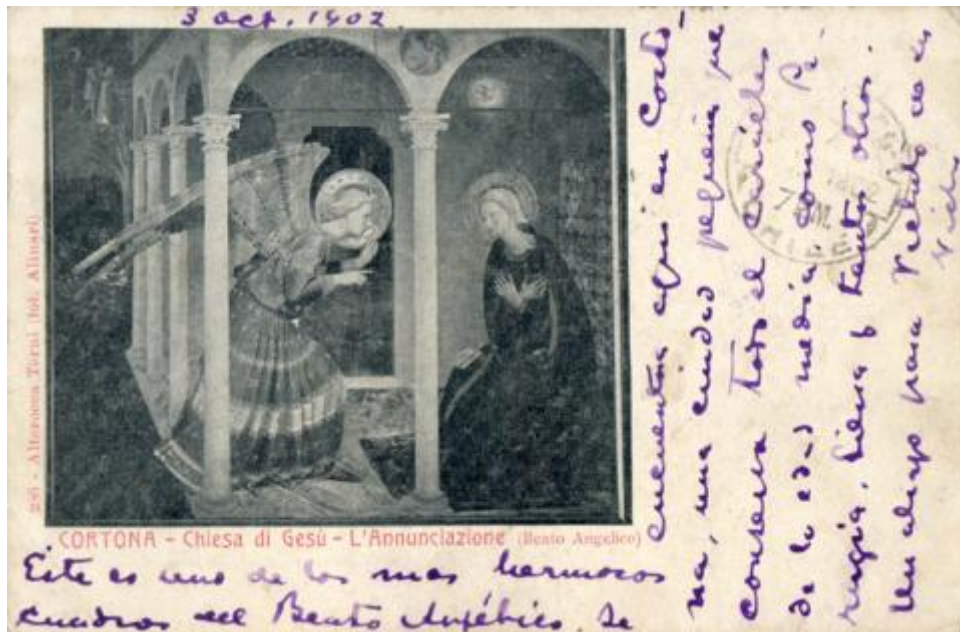 3 oct. 1902
286 - Alterocca Terni (fot. Alinari)
CORTONA - Chiesa di Gesù - L'Annunciazione (Beato Angelico)
Este es uno de los mas hermosos
cuadros del Beato Angélico. Se
encuentra aqui en Corto-
na, una ciudad pequeña que
conserva todo el carácter
de la edad media, como Pe-
rugia, Siena y tantas otras.
Un abrazo para